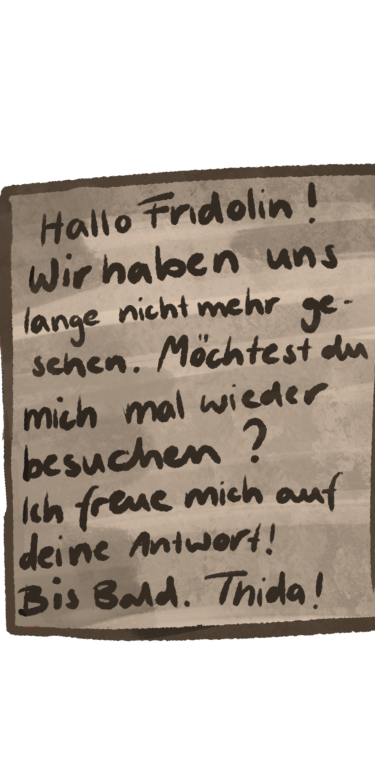 Hallo Fridolin!
Wir haben uns
lange nicht mehr ge-
sehen. Möchtest du
mich mal wieder
besuchen?
Ich freue mich auf
deine Antwort!
Bis Bald. Thida!